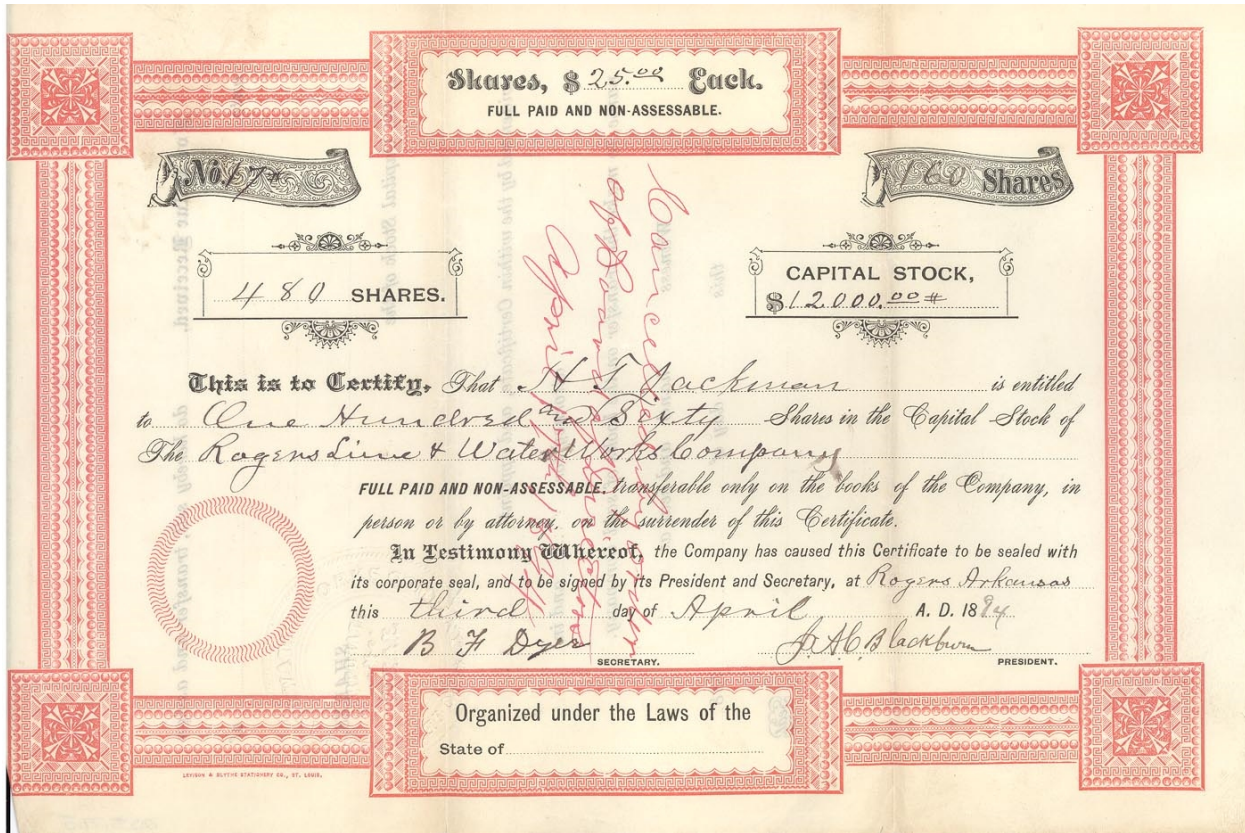 Shares, $ 25.00 Each.
FULL PAID AND NON-ASSESSABLE.
No. 17
160 Shares
480 SHARES.
CAPITAL STOCK,
$12000.00
This is to Certify, That H T Jackman is entitled
to One Hundred and Sixty Shares in the Capital Stock of
The Rogers Lime & Water Works Company
FULL PAID AND NON-ASSESSABLE. transferable only on the books of the Company, in
person or by attorney, on the surrender of this Certificate.
In Testimony Whereof, the Company has caused this Certificate to be sealed with
its corporate seal, and to be signed by its President and Secretary, at Rogers Arkansas
this third day of April A. D. 1894
B F Dyer SECRETARY. J A C Blackburn PRESIDENT.
Cancelled by order
of Board of Directors
April 1894
Organized under the Laws of the
State of
LEVISON & BLYTHE STATIONERY CO., ST. LOUIS.